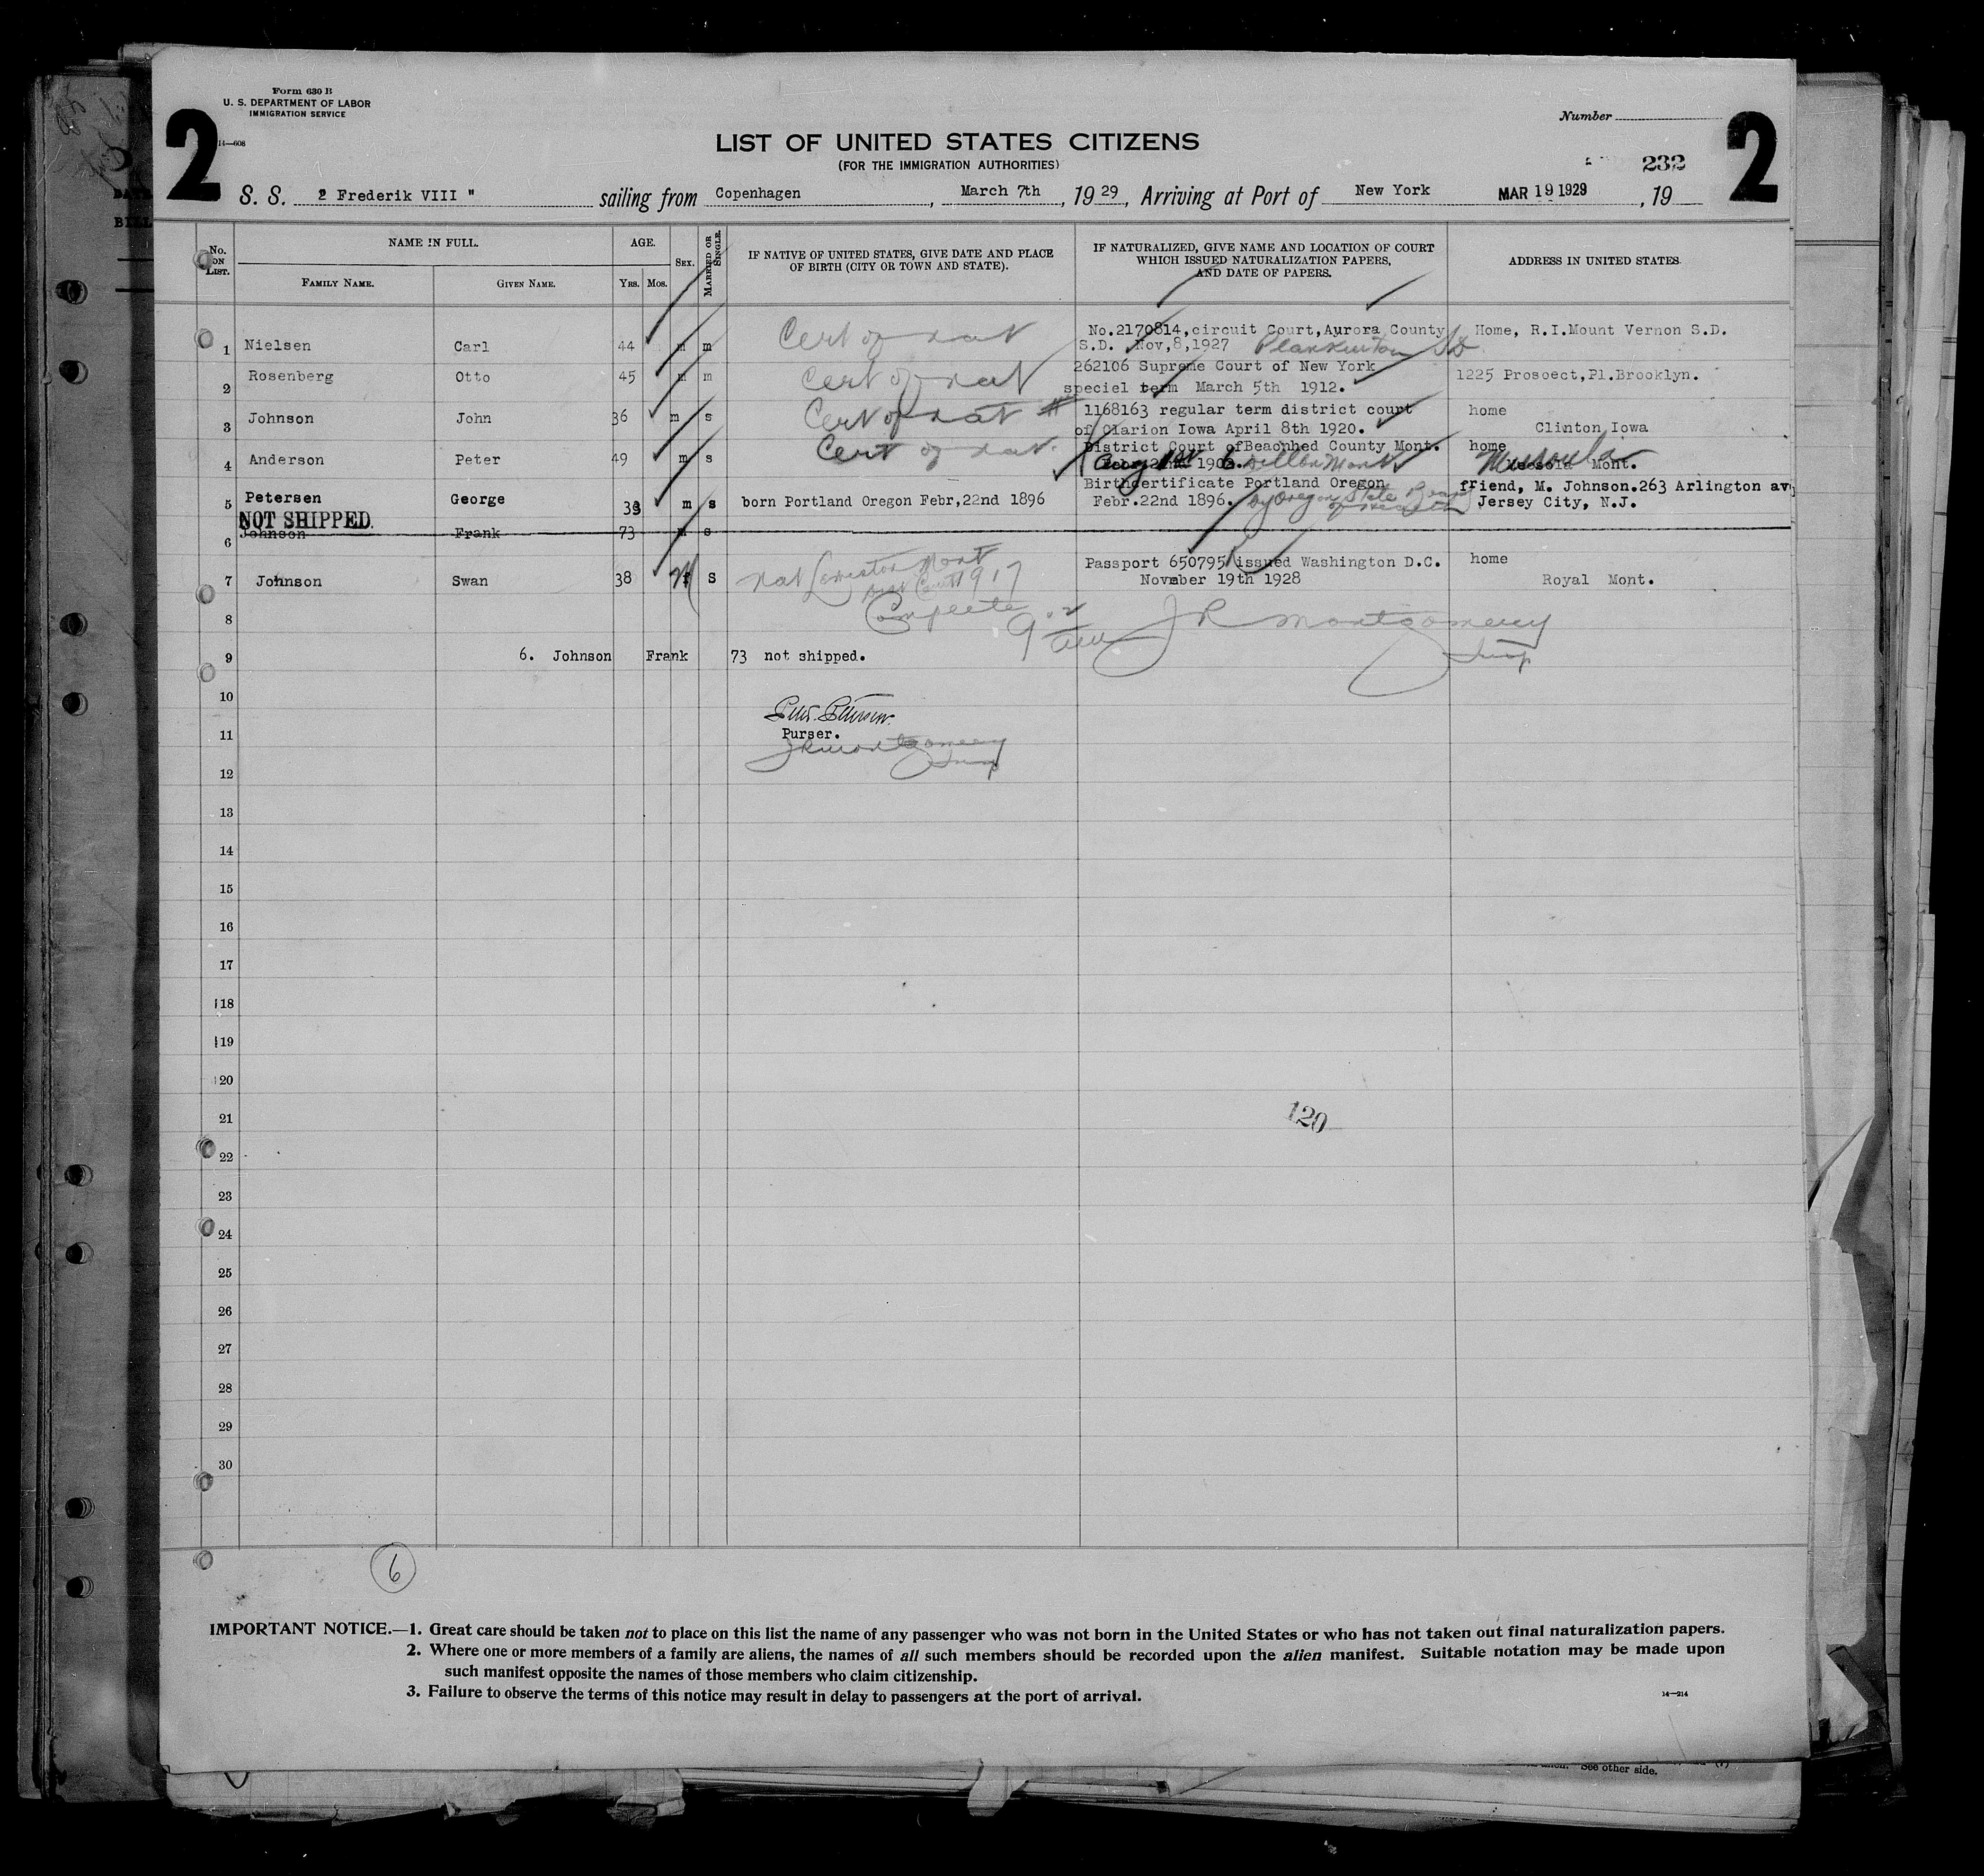 Form 630 B
U. S. DEPARTMENT OF LABOR
IMMIGRATION SERVICE
14—608
2
2
Number
LIST OF UNITED STATES CITIZENS
(FOR THE IMMIGRATION AUTHORITIES)
232
S. S. 2 Frederik VIII " sailing from Copenhagen, March 7th, 1929, Arriving at Port of New York MAR 19 1929, 19
No. ON LIST. NAME IN FULL. AGE. SEX. MARRIED OR SINGLE. IF NATIVE OF UNITED STATES, GIVE DATE AND PLACE OF BIRTH (CITY OR TOWN AND STATE). IF NATURALIZED, GIVE NAME AND LOCATION OF COURT WHICH ISSUED NATURALIZATION PAPERS, AND DATE OF PAPERS. ADDRESS IN UNITED STATES.
FAMILY NAME. GIVEN NAME. YRS. MOS.
1 Nielsen Carl 44 m m Cert of nat No.2170814,circuit Court,Aurora County S.D. Nov,8,1927 Plankinton SD Home, R.I.Mount Vernon S.D.
2 Rosenberg Otto 45 m m Cert of nat 262106 Supreme Court of New York speciel term March 5th 1912. 1225 Prosoect,Pl.Brooklyn.
3 Johnson John 36 m s Cert of nat # 1168163 regular term district court of Clarion Iowa April 8th 1920. home Clinton Iowa
4 Anderson Peter 49 m s Cert of nat. District Court ofBeaonhed County Mont. Dillon Mont home Missoula Mont.
5 Petersen George 33 m s born Portland Oregon Febr,22nd 1896 Birthcertificate Portland Oregon Febr.22nd 1896. by Oregon State Board of Health fFiend, M. Johnson.263 Arlington av Jersey City, N.J.
NOT SHIPPED.
6 Johnson Frank 73 m s
7 Johnson Swan 38 M S nat Lewiston Mont Dist Court 1917 Passport 650795 issued Washington D.C. November 19th 1928 home Royal Mont.
8 Complete J R Montgomery Insp
9 6. Johnson Frank 73 not shipped.
10
Petersen.
11 Purser.
JR Montgomery
Insp
12
13
14
15
16
17
18
19
20
21
120
22
23
24
25
26
27
28
29
30
6
IMPORTANT NOTICE.—1. Great care should be taken not to place on this list the name of any passenger who was not born in the United States or who has not taken out final naturalization papers.
2. Where one or more members of a family are aliens, the names of all such members should be recorded upon the alien manifest. Suitable notation may be made upon
such manifest opposite the names of those members who claim citizenship.
3. Failure to observe the terms of this notice may result in delay to passengers at the port of arrival.
14—214
See other side.